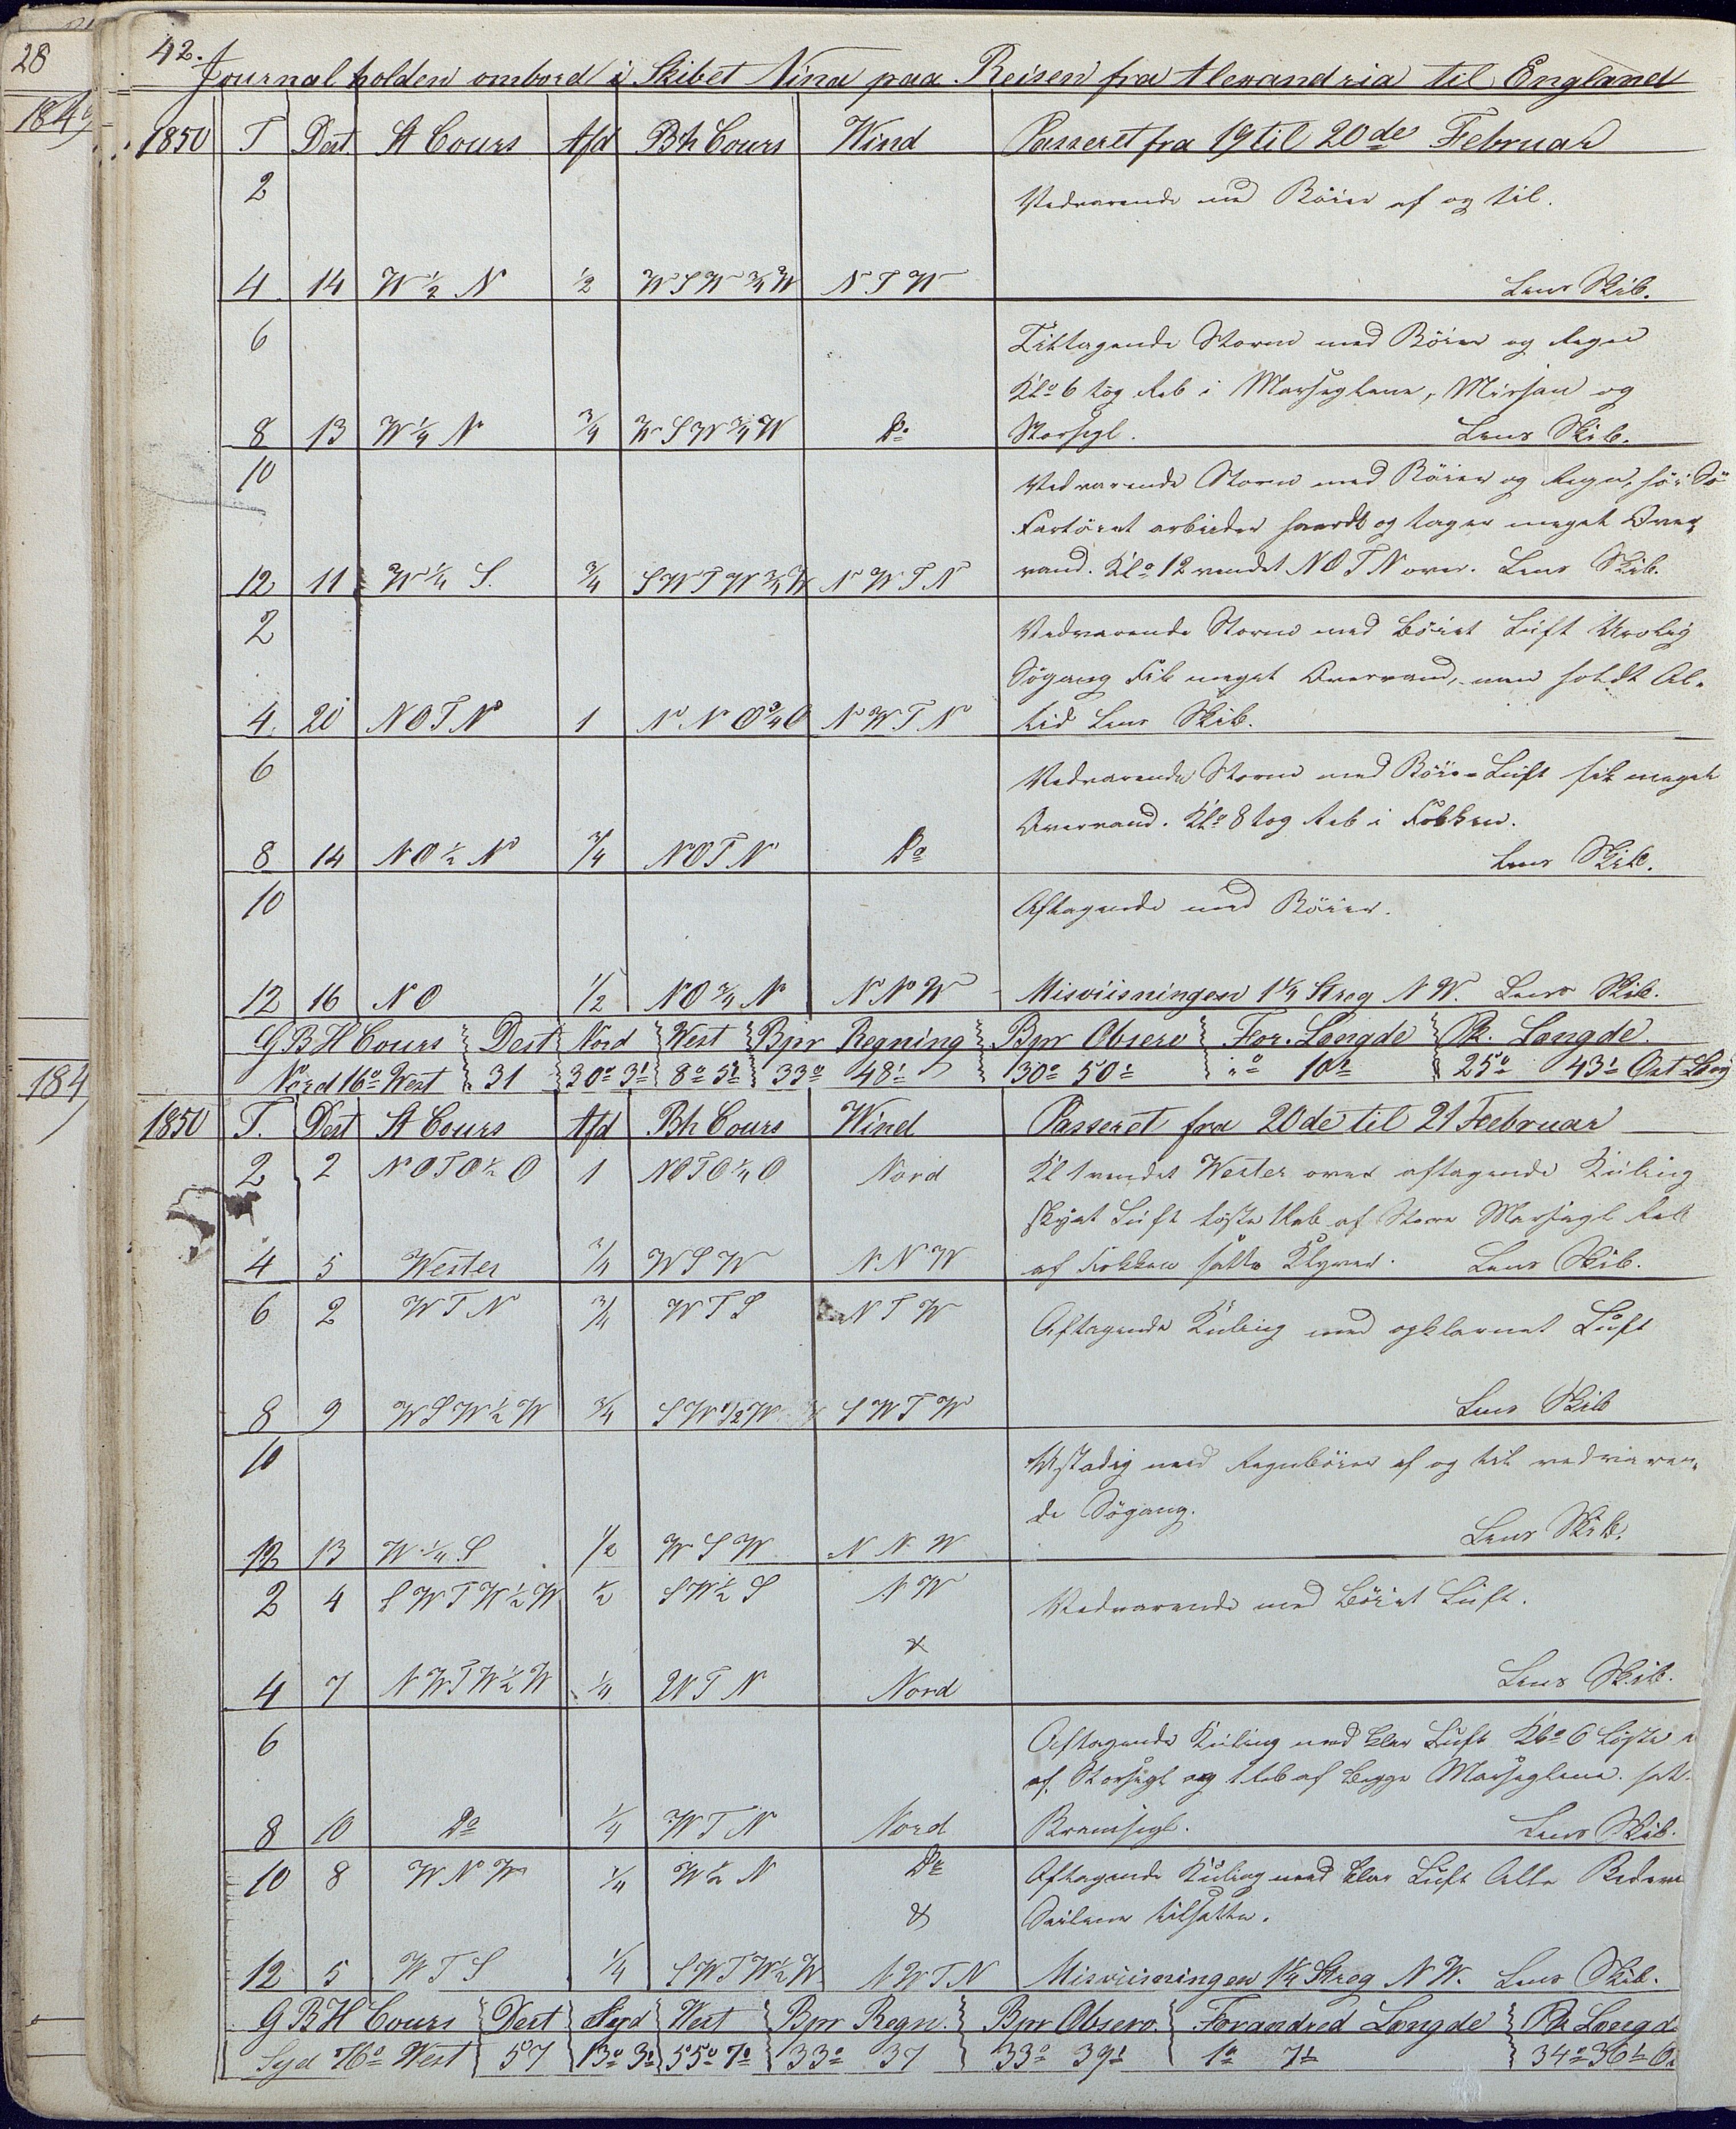 28
1849
184
42.
Journal holden ombord i Skibet Nina paa Reisen fra Alexandria til England
1850 T Dist. St Cours Afd Bh Cours Wind Passeret fra 19 til 20de Februar
2 Vedvarende med Böier af og til.
4 14 W ½ N ½ WSW ¾ W NTW Lens Skib.
6 Tiltagende Storm med Böier og Regn
Klo 6 tog Reb i Mersseglene, Mersan og
8 13 W ¼ N ¾ WSW ¾ W Do Storsegl. Lens Skib.
10 Vedvarende Storm med Böier og Regn, höi Sö
Fartöiet arbeider haardt og tager meget Over
12 11 W ¼ S. ¾ SWTW ¾ W NWTN vand. Klo 12 vendet NOTN over. Lens Skib.
2 Vedvarende Storm med böiet Luft Urolig
Sögang Fik meget Overvand, men holdt Al-
4 20 NOTN 1 NNO ¾ O NWTN tid Lens Skib.
6 Vedvarende Storm med Böie-Luft fik meget
Overvand. Klo 8 tog Reb i Fokken.
8 14 NO ½ N ¾ NOTN Do Lens Skib.
10 Aftagende med Böier.
12 16 NO ½ NO ¾ N NNW Misviisningen 1¼ Streg NW. Lens Skib.
GBH Cours Dist Nord West Bpr Regning Bpr Observ For. Longde Pk. Longde.
Nord 16° West 31 30° 3' 8° 5' 33° 48' 30° 50' "° 10' 25° 43' Ost Lhvg
1850 T. Dist St Cours Afd Bh Cours Wind Passeret fra 20de til 21 Feebruar
2 2 NOTO ½ O 1 NOTO ¼ O Nord Kl 1 vendet Wester over aftagende Kuling
skyet Luft löste 1 Reb af Store Mersegl Reb
4 5 Wester ¾ WSW NNW af Fokken satte Klyver. Lens Skib.
6 2 WTN ¾ WTS NTW Aftagende Kuling med opklarnet Luft
8 9 WSW ½ W ¾ SW ½ W SWTW Lens Skib
10 Ustadig med Regnböier af og til vedvaren-
de Sögang.
12 13 W ¼ S ½ WSW NNW Lens Skib.
2 4 SWTW ½ W ½ SW ½ S NW Vedvarende med böiet Luft.
&
4 7 NWTW ½ W ¼ WTN Nord Lens Skib.
6 Aftagende Kuling med klar Luft Klo 6 Löste
af Storsegl og 1 Reb af begge Mersseglene. sat-
8 10 Do ¼ WTN Nord Bramsegl. Lens Skib.
10 8 WNW ¼ W ½ N Do Aftagende Kuling med klar Luft Alle
& Seilene tilsatte.
12 5 WTS ¼ SWTW ½ W NWTN Misviisningen 1¼ Streg NW. Lens Skib.
GBH Cours Dist Syd West Bpr Regn. Bpr Observ. Forandred Longde Pk Longd
Syd 76° West 57 13° 3' 55° 7° 33° 37 33° 39' 1° 7' 34° 36' O.